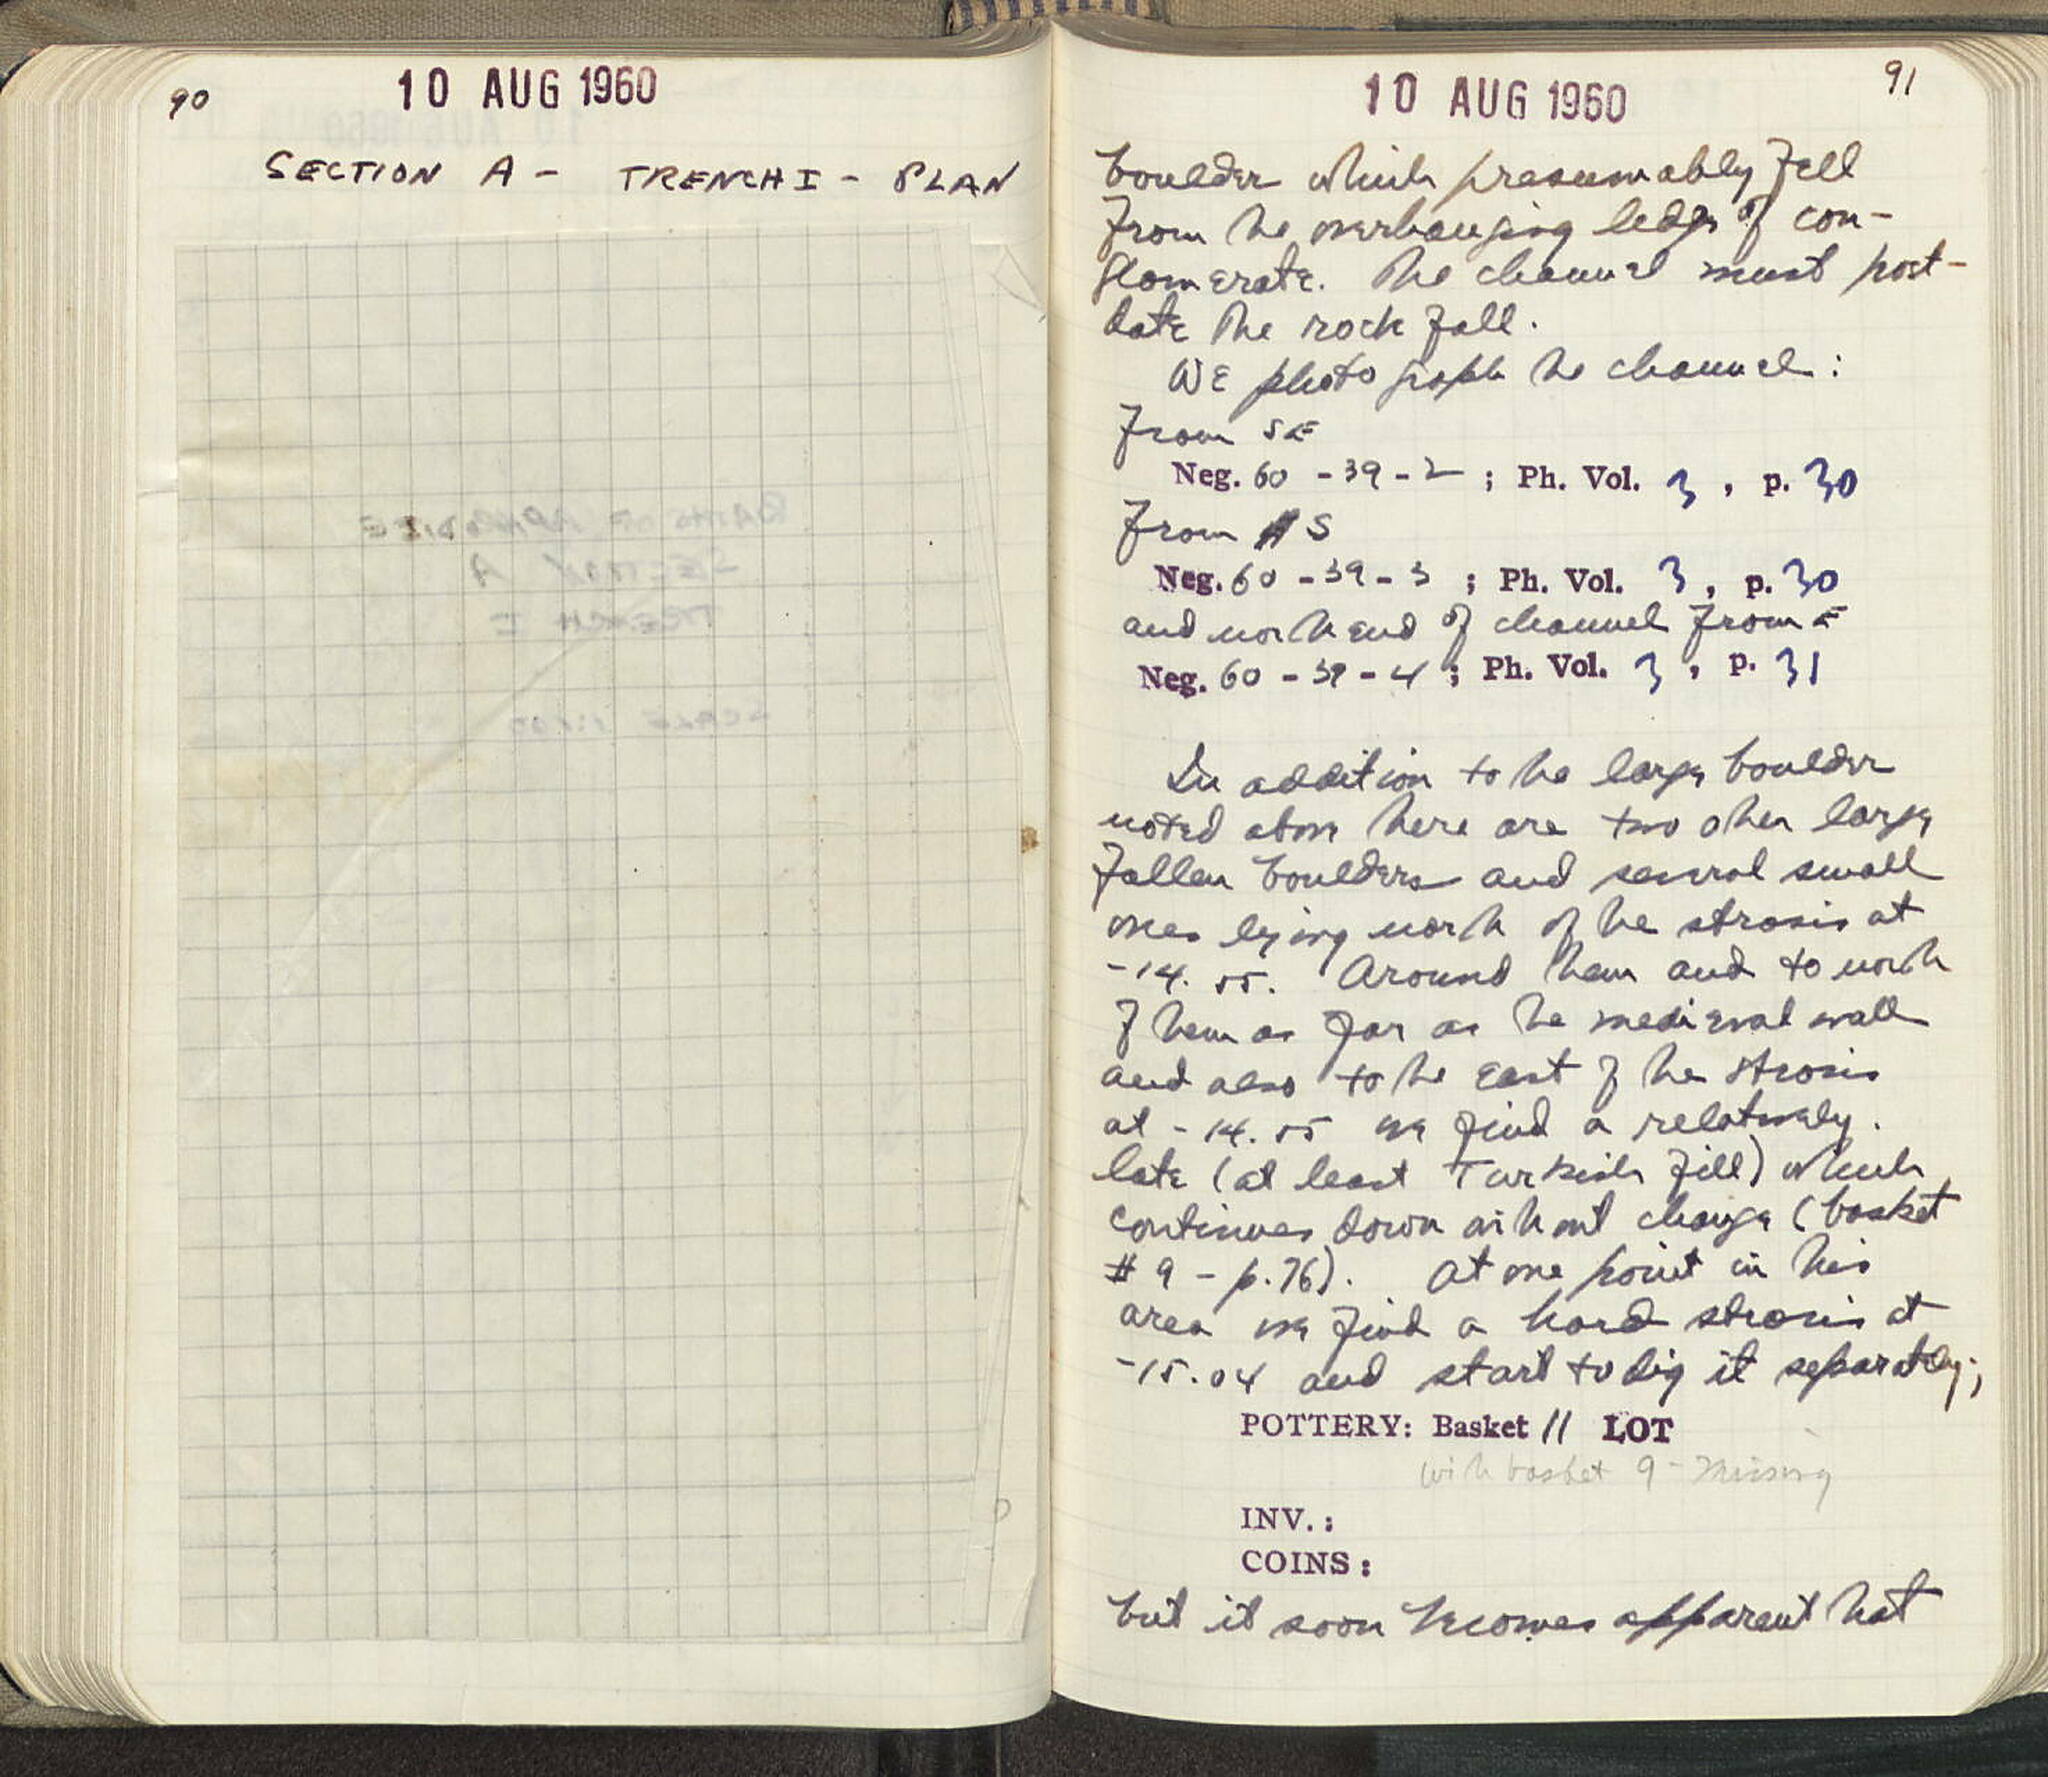 90
10 AUG 1960
SECTION A - TRENCH I - PLAN
BATHS OF APHRODITE
SECTION A
TRENCH I
SCALE 1:100
10 AUG 1960
91
boulder which presumably fell
from the overhanging ledge of con-
glomerate. The channel must post-
date the rock fall.
We photograph the channel:
From SE
Neg. 60 - 39 - 2 ; Ph. Vol. 3 , p. 30
From S
Neg. 60 - 39 - 3 ; Ph. Vol. 3 , p. 30
and north end of channel from E
Neg. 60 - 39 - 4 ; Ph. Vol. 3 , p. 31
In addition to the large boulder
noted above there are two other large
fallen boulders and several small
ones lying north of the strosis at
-14.55. Around them and to north
of them as far as the medieval wall
and also to the east of the strosis
at -14.55 we find a relatively
late (at least Turkish fill) which
continues down without change (basket
# 9 - p.76). At one point in this
area we find a hard strosis at
-15.04 and start to dig it separately;
POTTERY: Basket 11 LOT
with basket 9 - missing
INV.:
COINS:
but it soon becomes apparent that